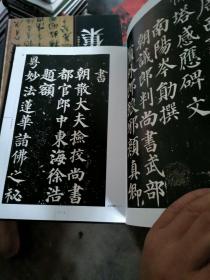 塔感應碑文
南陽岑勛撰
朝議郎判尚書武部
邪顏真卿
書
朝散大夫檢挍尚書
都官郎中東海徐浩
題額
粵妙法蓮華諸佛之秘
集